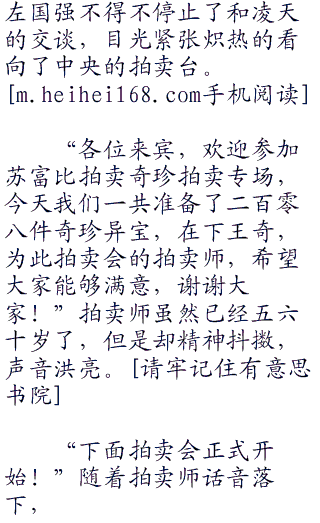 左国强不得不停止了和凌天
的交谈，目光紧张炽热的看
向了中央的拍卖台。
[m.heihei168.com手机阅读]
“各位来宾，欢迎参加
苏富比拍卖奇珍拍卖专场，
今天我们一共准备了二百零
八件奇珍异宝，在下王奇，
为此拍卖会的拍卖师，希望
大家能够满意，谢谢大
家！”拍卖师虽然已经五六
十岁了，但是却精神抖擞，
声音洪亮。[请牢记住有意思
书院]
“下面拍卖会正式开
始！”随着拍卖师话音落
下，